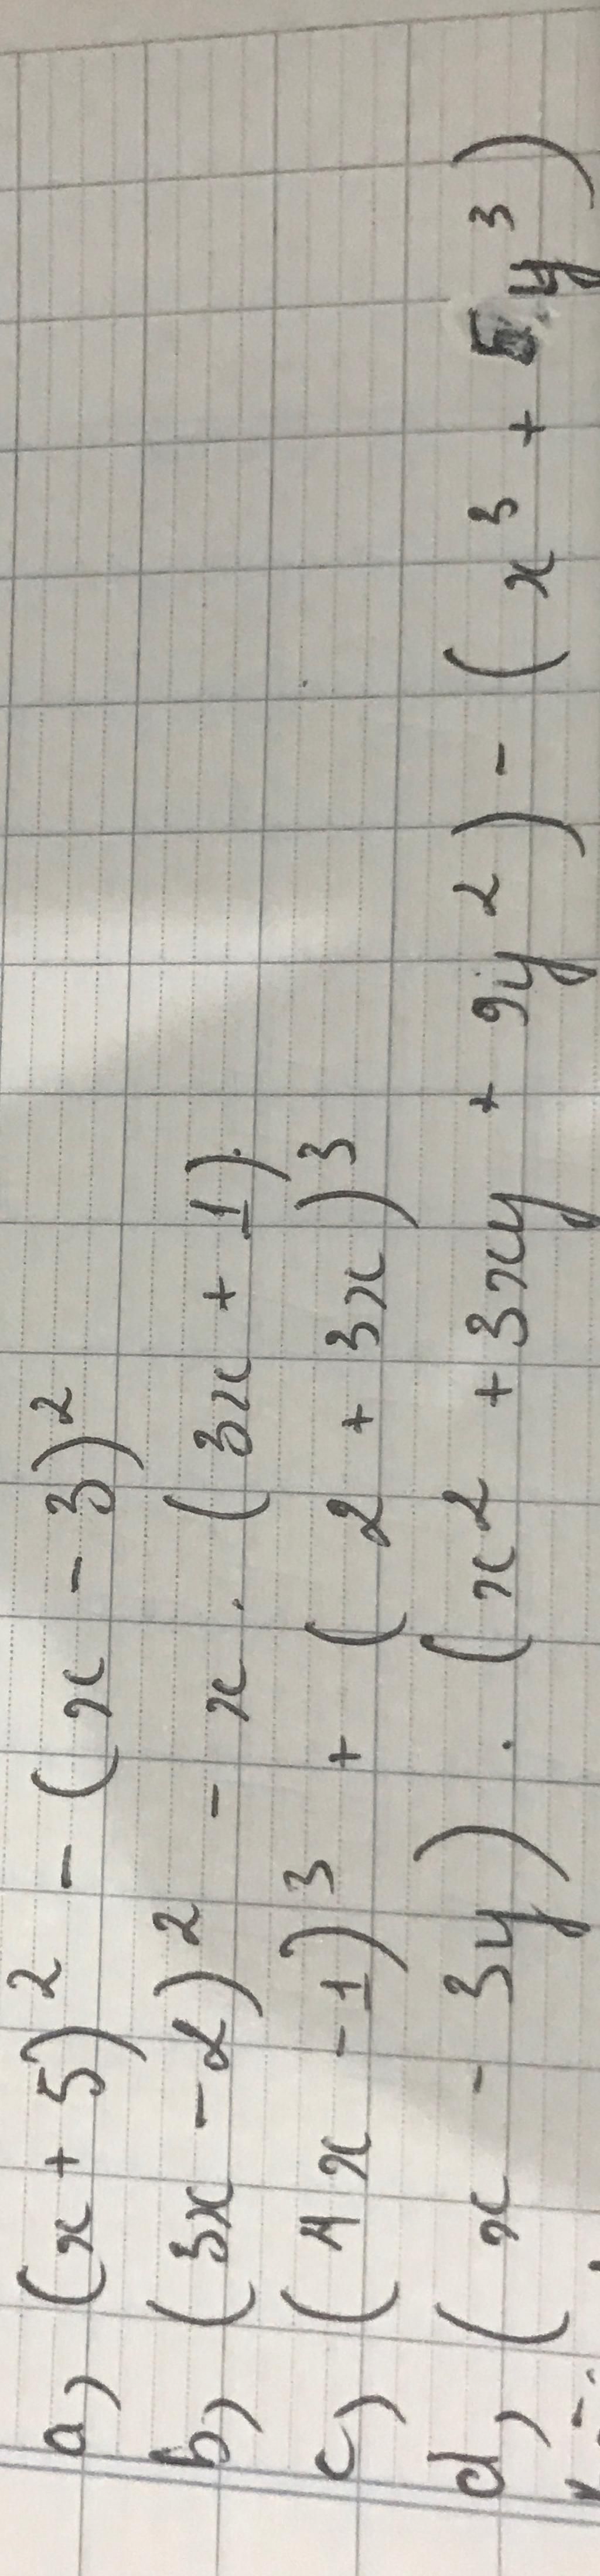 a) (x + 5)² - (x - 3)²
b) (3x - 2)² - x . (3x + 1)
c) (4x - 1)³ + (2 + 3x)³
d) (x - 3y) . (x² + 3xy + 9y²) - (x³ + 5y³)